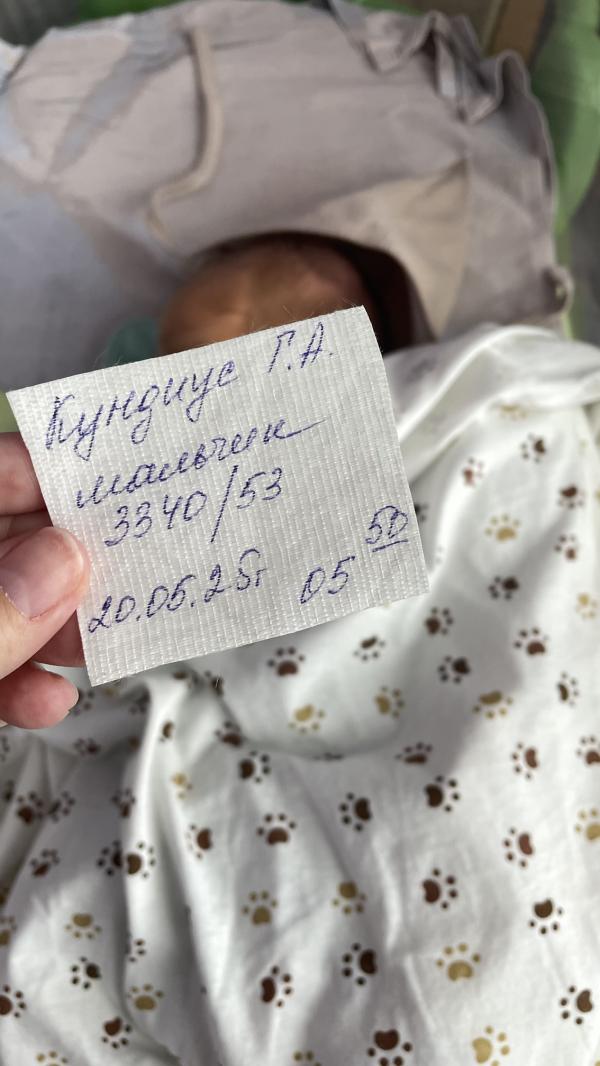 Кундиус Г.А.
мальчик
3340/53
20.05.25г 05 50